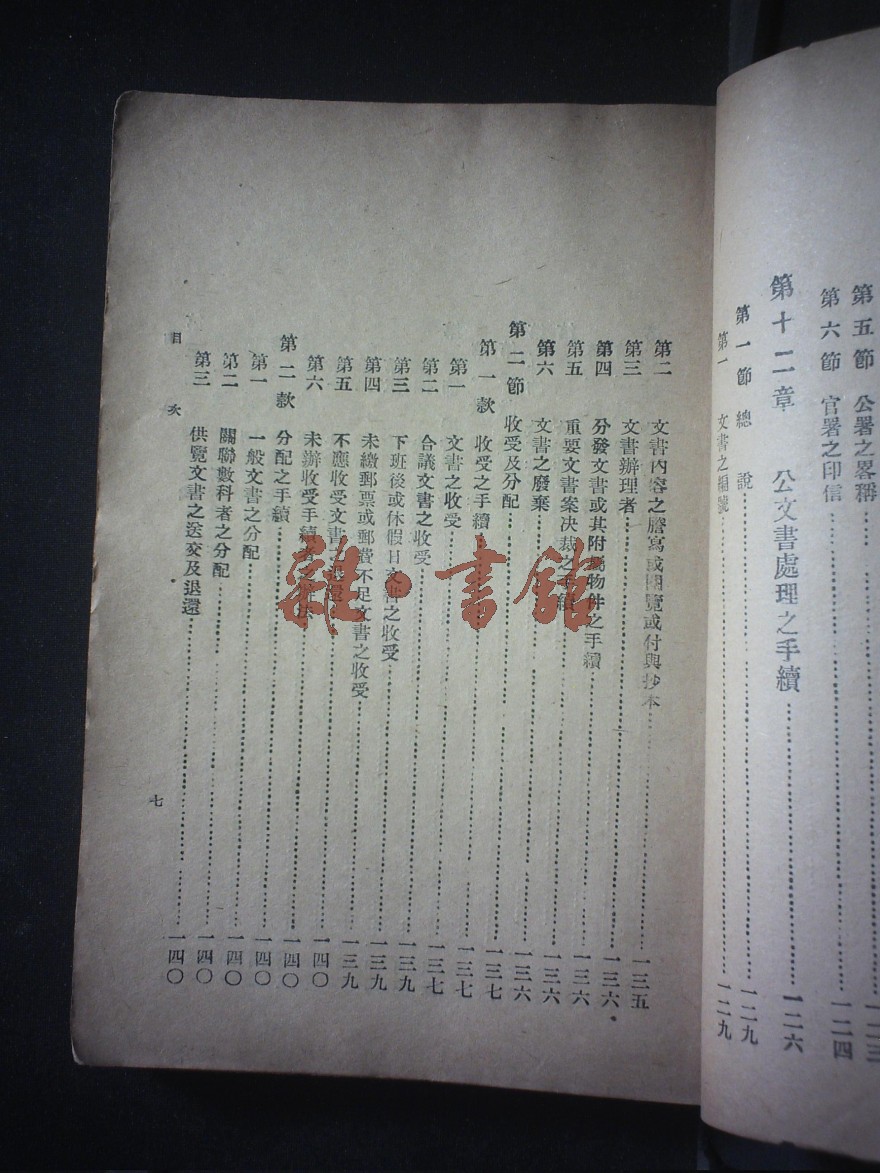 第五節 公署之畧稱……一二三
第六節 官署之印信……一二四
第十二章 公文書處理之手續……一二六
第一節 總說……一二九
第一 文書之編號……一二九
第二 文書內容之謄寫或閱覽或付與抄本……一三五
第三 文書辦理者……一三六
第四 分發文書或其附屬物件之手續……一三六
第五 重要文書案決裁之手續……一三六
第六 文書之廢棄……一三六
第二節 收受及分配……一三七
第一款 收受之手續……一三七
第一 文書之收受……一三七
第二 合議文書之收受……一三九
第三 下班後或休假日文件之收受……一三九
第四 未繳郵票或郵費不足文書之收受……一三九
第五 不應收受文書之退還……一四〇
第六 未辦收受手續者之……一四〇
第二款 分配之手續……一四〇
第一 一般文書之分配……一四〇
第二 關聯數科者之分配……一四〇
第三 供覽文書之送交及退還……一四〇
目 次
七
雜·書館